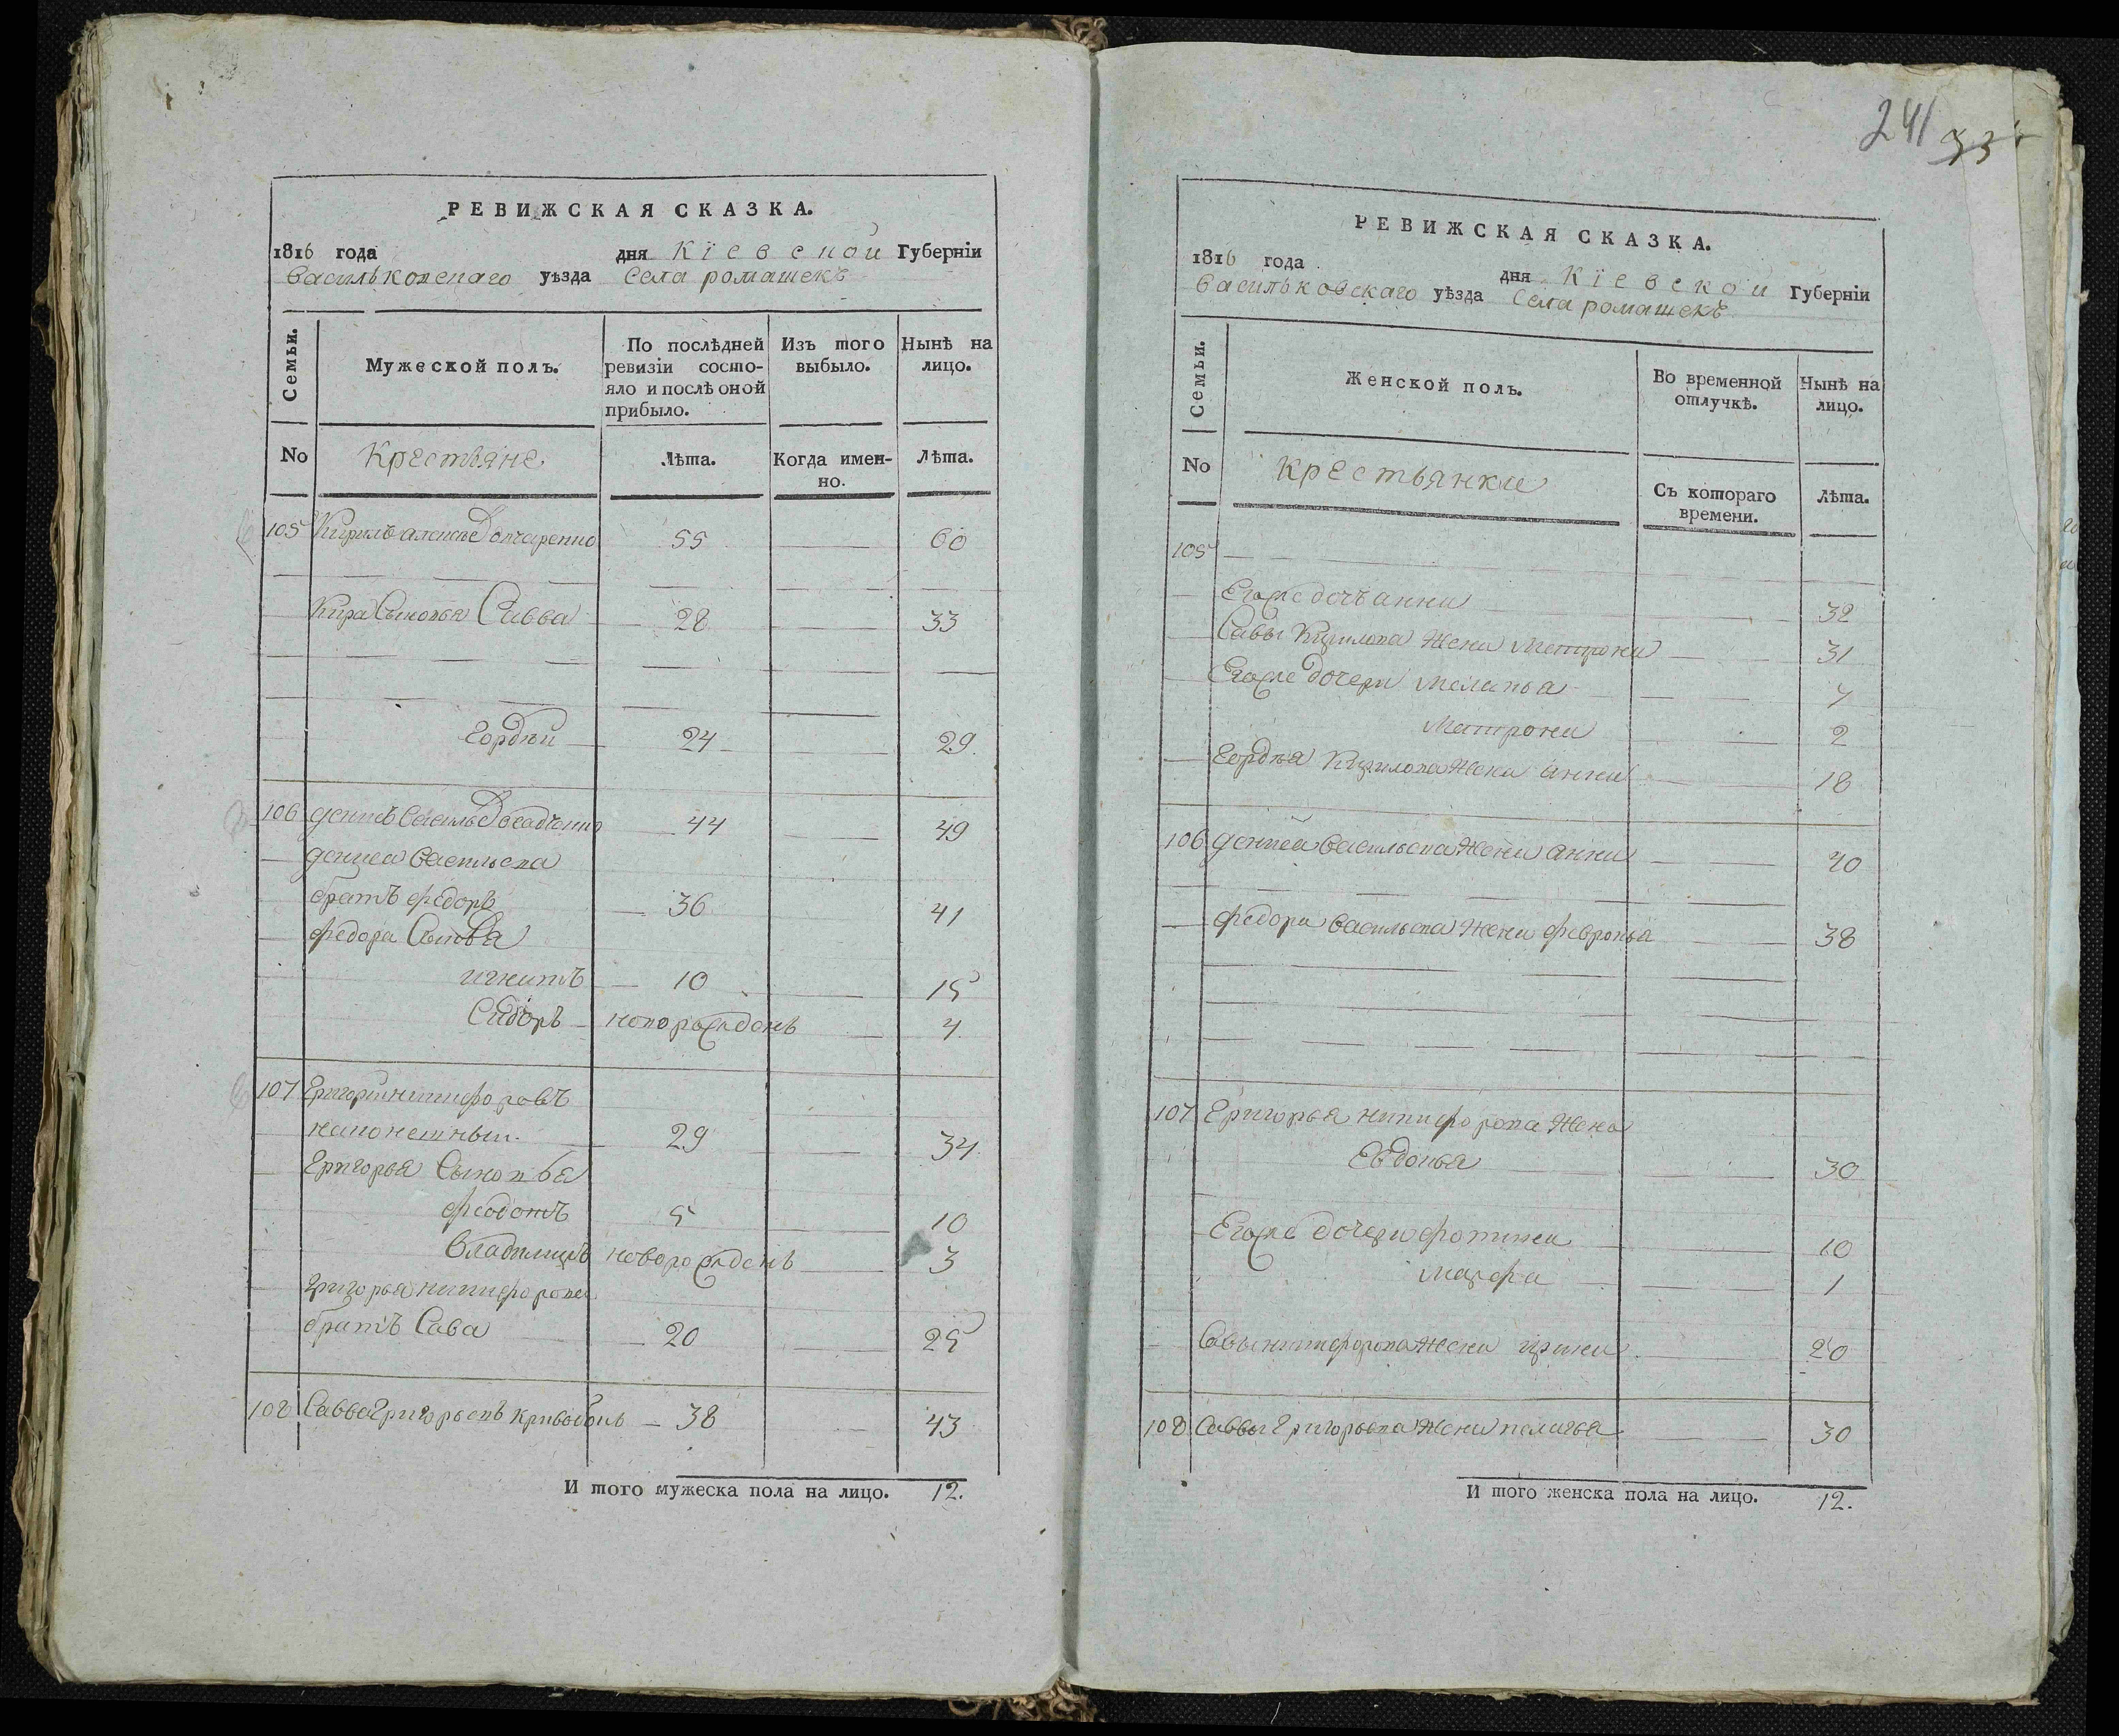 РЕВИЖСКАЯ СКАЗКА.
1816 года дня Кїевской Губерніи
Васильковскаго уѣзда Села ромашекъ
Семьи. Мужеской полъ. По послѣдней ревизіи состояло и послѣ оной прибыло. Изъ того выбыло. Нынѣ на лицо.
No Крестьяне Лѣта. Когда именно. Лѣта.
105 55 60
Савва 28 33
Гордѣй 24 29
106 44 49
братъ федоръ 36 41
федора Сыновья
игнатъ 10 15
Сидоръ новорожденъ 4
107 Григорий никифоровъ
29 34
Григорья Сыновья
феодотъ 5 10
Владимиръ новорожденъ 3
Григорья никифорова
братъ Сава 20 25
108 Савва Григорьевъ 38 43
И того мужеска пола на лицо. 12.
241 33
РЕВИЖСКАЯ СКАЗКА.
1816 года дня Кїевской Губерніи
Васильковскаго уѣзда Села ромашекъ
Семьи. Женской полъ. Во временной отлучкѣ. Нынѣ на лицо.
No Крестьянки Съ котораго времени. Лѣта.
105
Егоже дочь анна 32
Савы Кирилова жена Матрона 31
Егоже дочери Меланья 7
Матрона 2
Гордѣя Кирилова жена анна 18
106 дениса васильева жена анна 40
федора васильева жена февронья 38
107 Григорья никифорова жена
Евдокья 30
Егоже дочери фотина 10
Марфа 1
Савы никифорова жена ирина 20
108 Саввы Григорьева жена пелагья 30
И того женска пола на лицо. 12.